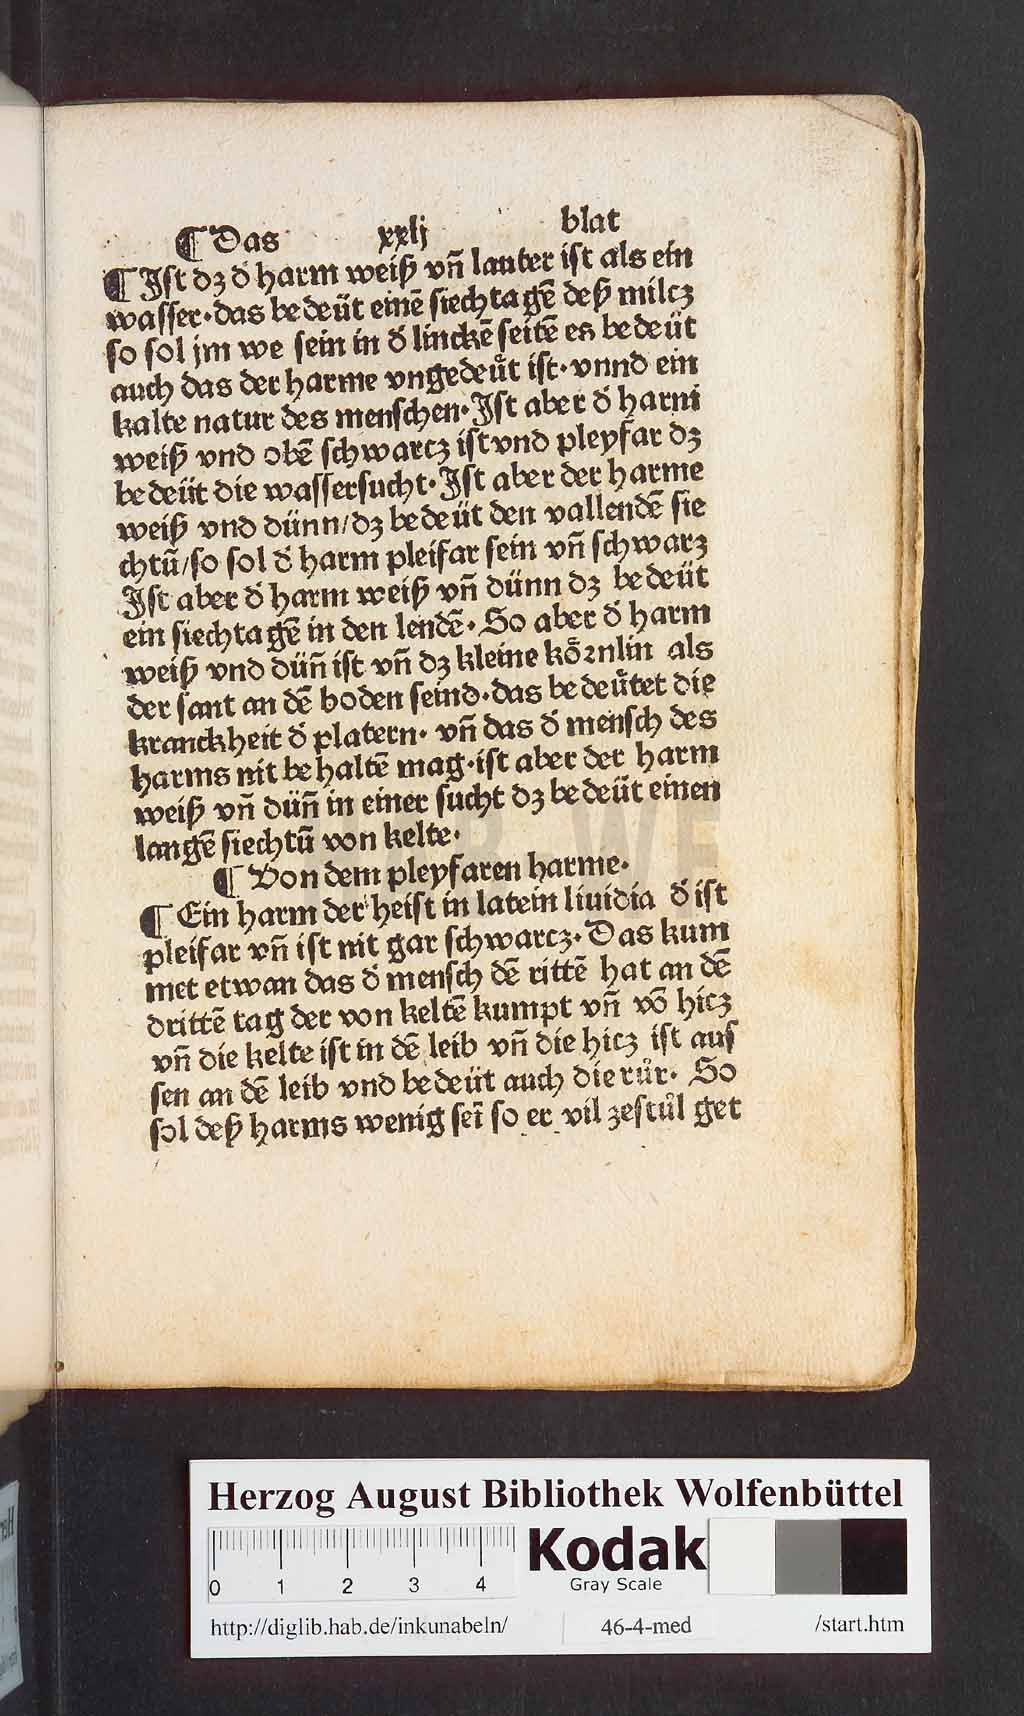 ¶ Das xxlj blat
¶ Jst dʒ d̕ harm weiß vñ lauter ist als ein
wasser·das bedeüt einē siechtagē deß milcz
so sol jm we sein in d̕ linckē seitē es bedeüt
auch das der harme vngedeüt ist·vnnd ein
kalte natur des menschen·Jst aber d̕ harm
weiß vnd obē schwarcz ist vnd pleyfar dʒ
bedeüt die wassersucht·Jst aber der harme
weiß vnd dünn/dʒ bedeüt den vallendē sie
chtū/so sol d̕ harm pleifar sein vñ schwarz
Jst aber d̕ harm weiß vñ dünn dʒ bedeüt
ein siechtagē in den lendē·So aber d̕ harm
weiß vnd düñ ist vñ dʒ kleine koͤrnlin als
der sant an dē boden seind·das bedeütet die
kranckheit d̕ platern·vñ das d̕ mensch des
harms nit behaltē mag·ist aber der harm
weiß vñ düñ in einer sucht dʒ bedeüt einen
langē siechtū von kelte·
¶ Von dem pleyfaren harme·
¶ Ein harm der heist in latein liuidia d̕ ist
pleifar vñ ist nit gar schwarcz·Das kum
met etwan das d̕ mensch dē rittē hat an dē
drittē tag der von keltē kumpt vñ vō hicz
vñ die kelte ist in dē leib vñ die hicz ist aus
sen an dē leib vnd bedeüt auch die růr·So
sol deß harms wenig seī so er vil zestůl get
HAB-WF
Herzog August Bibliothek Wolfenbüttel
0 1 2 3 4
Kodak
Gray Scale
http://diglib.hab.de/inkunabeln/ 46-4-med /start.htm